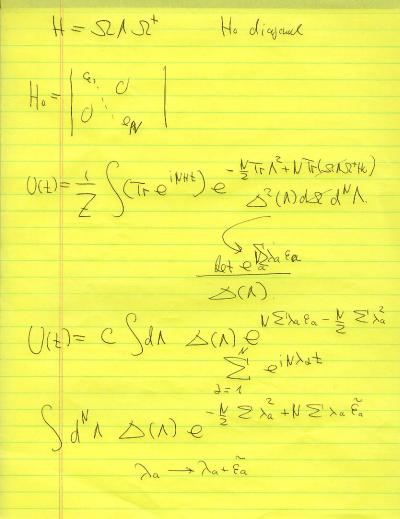 H = Ω Λ Ω⁺    H₀ diagonal
H₀ = | e₁ 0 ⋱ 0 e_N |
U(t) = 1/Z ∫ (Tr e^{iNHt}) e^{-N/2 Tr Λ² + N Tr(ΩΛΩ⁺H₀)} Δ²(Λ) dΩ d^N Λ.
det e^{Nλ_a ε_a} / Δ(Λ)
U(t) = C ∫ dΛ Δ(Λ) e^{N Σ λ_a ε_a - N/2 Σ λ_a²}
Σ_{α=1}^{N} e^{iNλ_α t}
∫ d^N Λ Δ(Λ) e^{-N/2 Σ λ_a² + N Σ λ_a ε̃_a}
λ_a → λ_a + ε̃_a